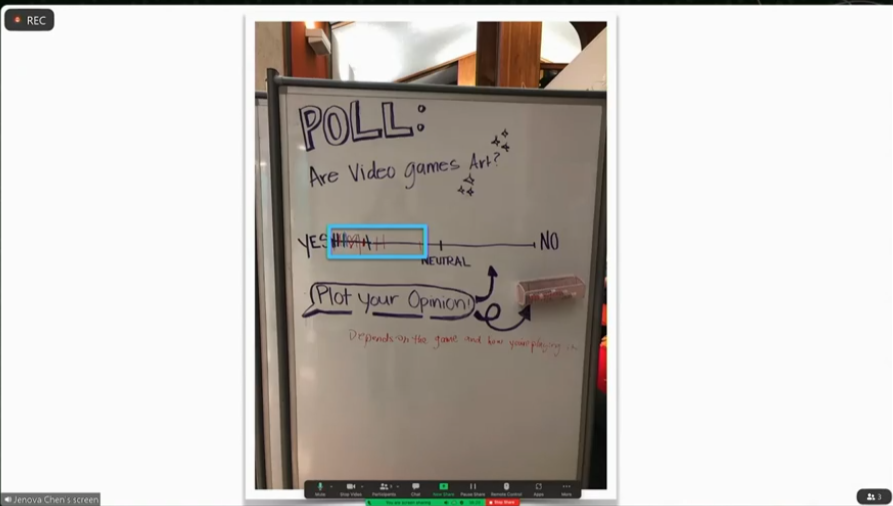 REC
POLL:
Are Video games Art?
YES NO
NEUTRAL
Plot Your Opinion!
Depends on the game and how your playing it
Mute Stop Video Participants Chat New Share Pause Share Remote Control Apps More
You are screen sharing Stop Share
Jenova Chen's screen
3